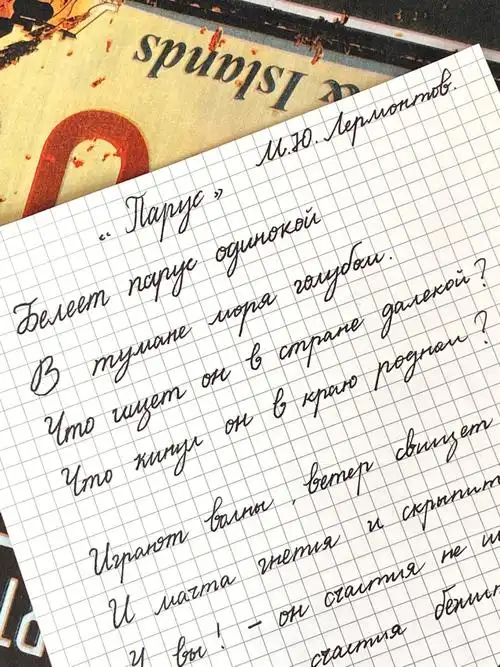 & Islands
М.Ю. Лермонтов.
„Парус”
Белеет парус одинокой
В тумане моря голубом.
Что ищет он в стране далекой?
Что кинул он в краю родном?
Играют волны, ветер свищет
И мачта гнется и скрыпит
У вы! - он счастия не
счастия бежит